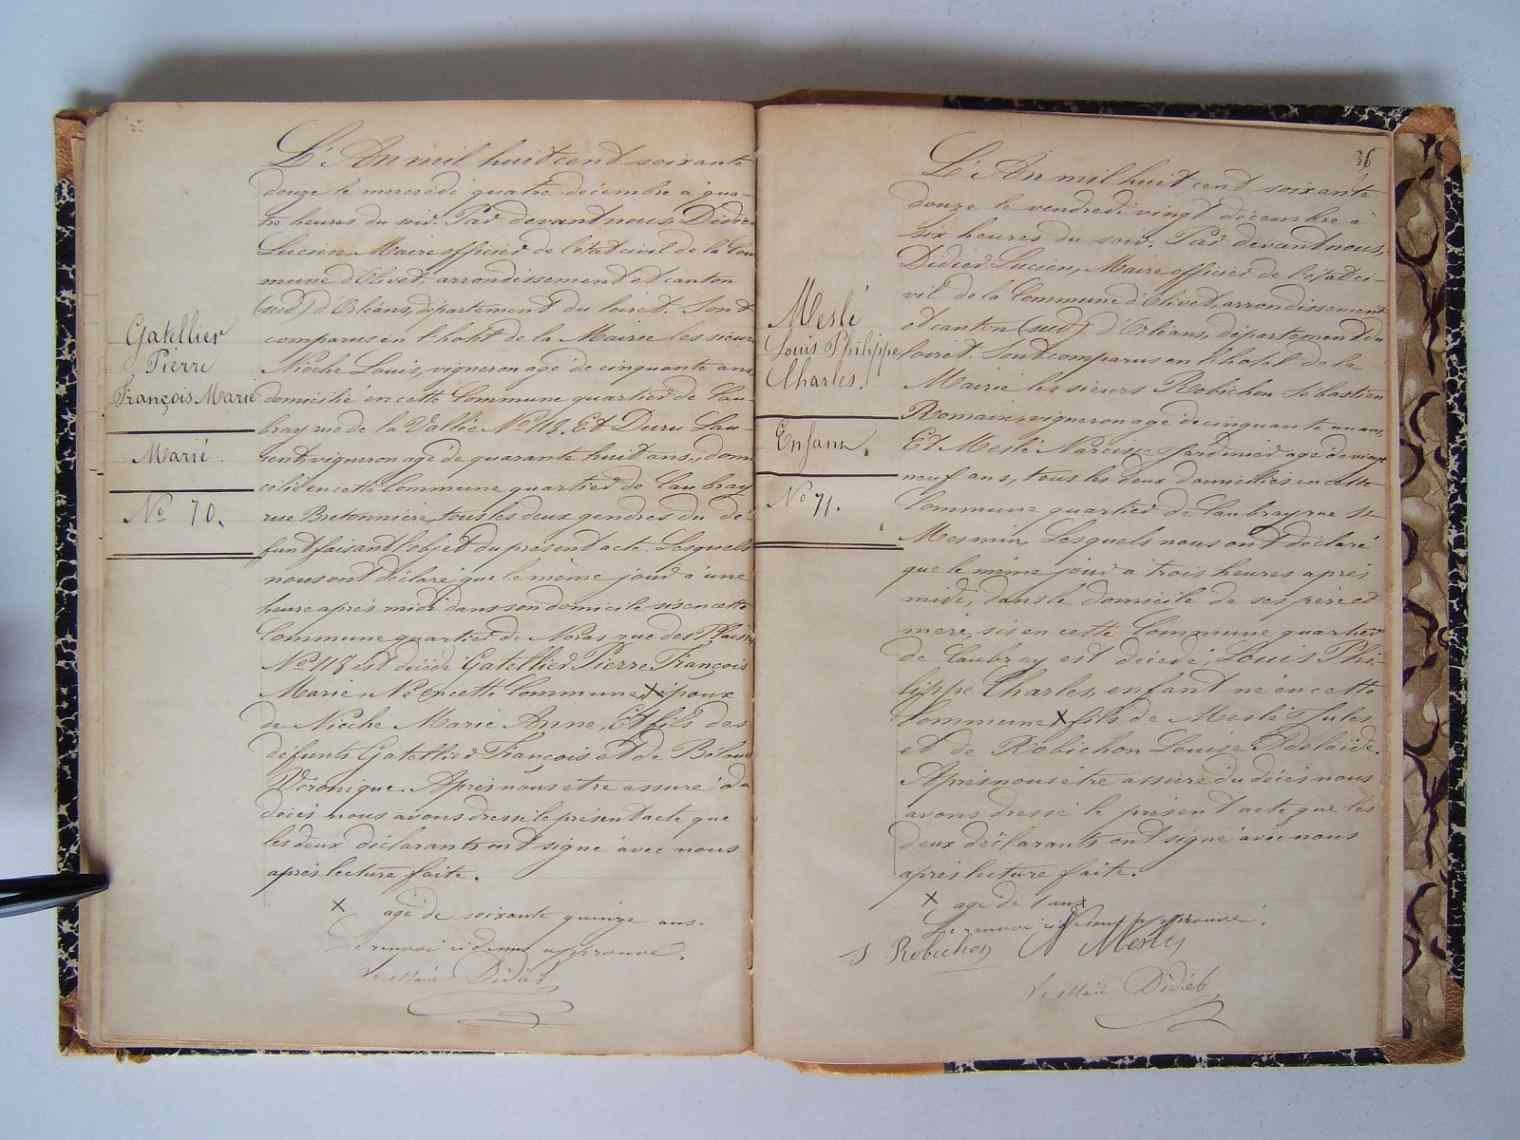 Gatellier
Pierre
François Marie
Marié.
No 70.
L'An mil huit cent soixante
douze le mercredi quatre décembre à qua-
tre heures du soir. Par devant nous Didier
Lucien Maire officier de l'état civil de la Com
mune d'Olivet, arrondissement et canton
(sud) d'Orléans, département du loiret. Sont
comparus en l'hôtel de la Mairie les sieurs
Nioche Louis, vigneron agé de cinquante ans
domicilié en cette Commune quartier de Cau-
bray rue de la Vallée No 118. Et Duru Lau-
rent, vigneron agé de quarante huit ans, domi
cilié en cette Commune quartier de Caubray
rue Bretonnière, tous les deux gendres du dé-
funt faisant l'objet du présent acte. Lesquels
nous ont déclaré que le même jour à une
heure après midi dans son domicile sis en cette
Commune quartier de Noras rue des Plaisses
No 118 est décédé Gatellier Pierre François
Marie Né en cette Commune X époux
de Nioche Marie Anne, Et fils des
défunts Gatellier François et de
Véronique. Après nous être assuré du
décès nous avons dressé le présent acte que
les deux déclarants ont signé avec nous
après lecture faite.
X agé de soixante quinze ans.
Le renvoi ci dessus approuvé.
Le Maire Didier
36
Meslé
Louis Philippe
Charles.
Enfant.
No 71.
L'An mil huit cent soixante
douze le vendredi vingt décembre à
six heures du soir. Par devant nous,
Didier Lucien, Maire officier de l'état ci-
vil de la Commune d'Olivet, arrondissement
et canton (sud) d'Orléans, département du
loiret. Sont comparus en l'hôtel de la
Mairie les sieurs Robichon Sébastien
Romain, vigneron agé de cinquante un ans,
Et Meslé Narcisse Jardinier agé de vingt
neuf ans, tous les deux domiciliés en cette
Commune quartier de Caubray rue St
Mesmin, Lesquels nous ont déclaré
que le même jour à trois heures après
midi, dans le domicile de ses père et
mère, sis en cette Commune quartier
de Caubray est décédé, Louis Phi-
lippe Charles, enfant né en cette
Commune X fils de Meslé Jules
et de Robichon Louise Adelaïde.
Après nous être assuré du décès nous
avons dressé le présent acte que les
deux déclarants ont signé avec nous
après lecture faite.
X agé de 1 an
Le renvoi ci dessus approuvé.
S Robichon N Meslé
Le Maire Didier